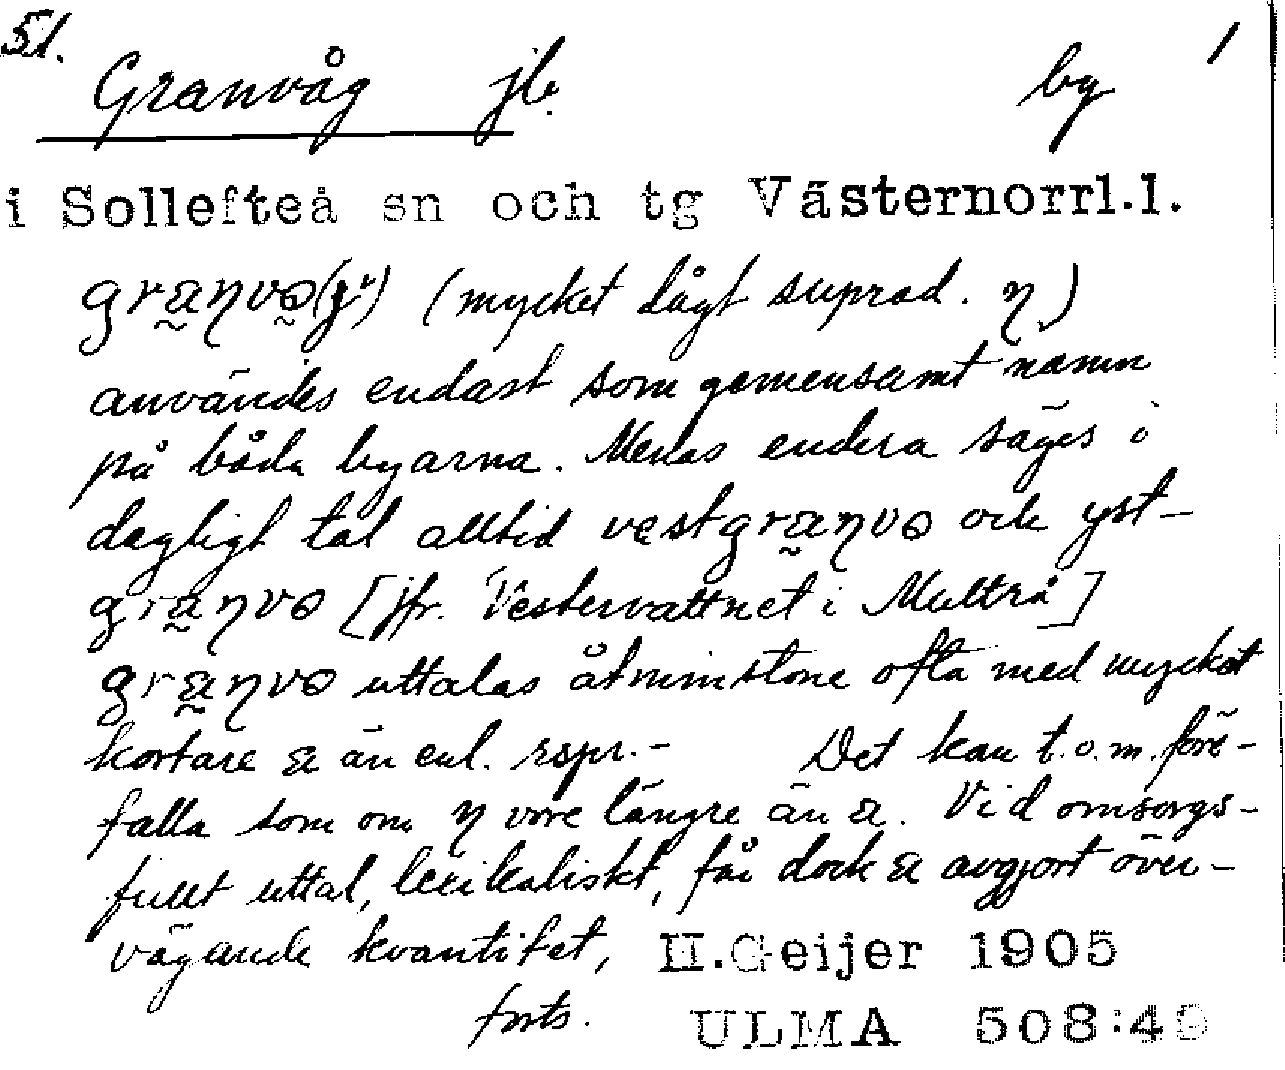 51.
Granvåg jb. by 1
i Sollefteå sn och tg Västernorrl.l.
(mycket lågt suprad. η)
användes endast som gemensamt namn
på båda byarna. Menas endera säges i
dagligt tal alltid vestgra̰ηvə och yst-
gra̰ηvə [jfr. Vestervattnet i Multrå]
gra̰ηvə uttalas åtminstone ofta med mycket
kortare a än enl. rspr.- Det kan t.o.m. före-
falla som om η vore längre än a. Vid omsorgs-
fullt uttal, lexikaliskt, får dock a avgjort över-
vägande kvantitet, H.Geijer 1905
forts. ULMA 508:49